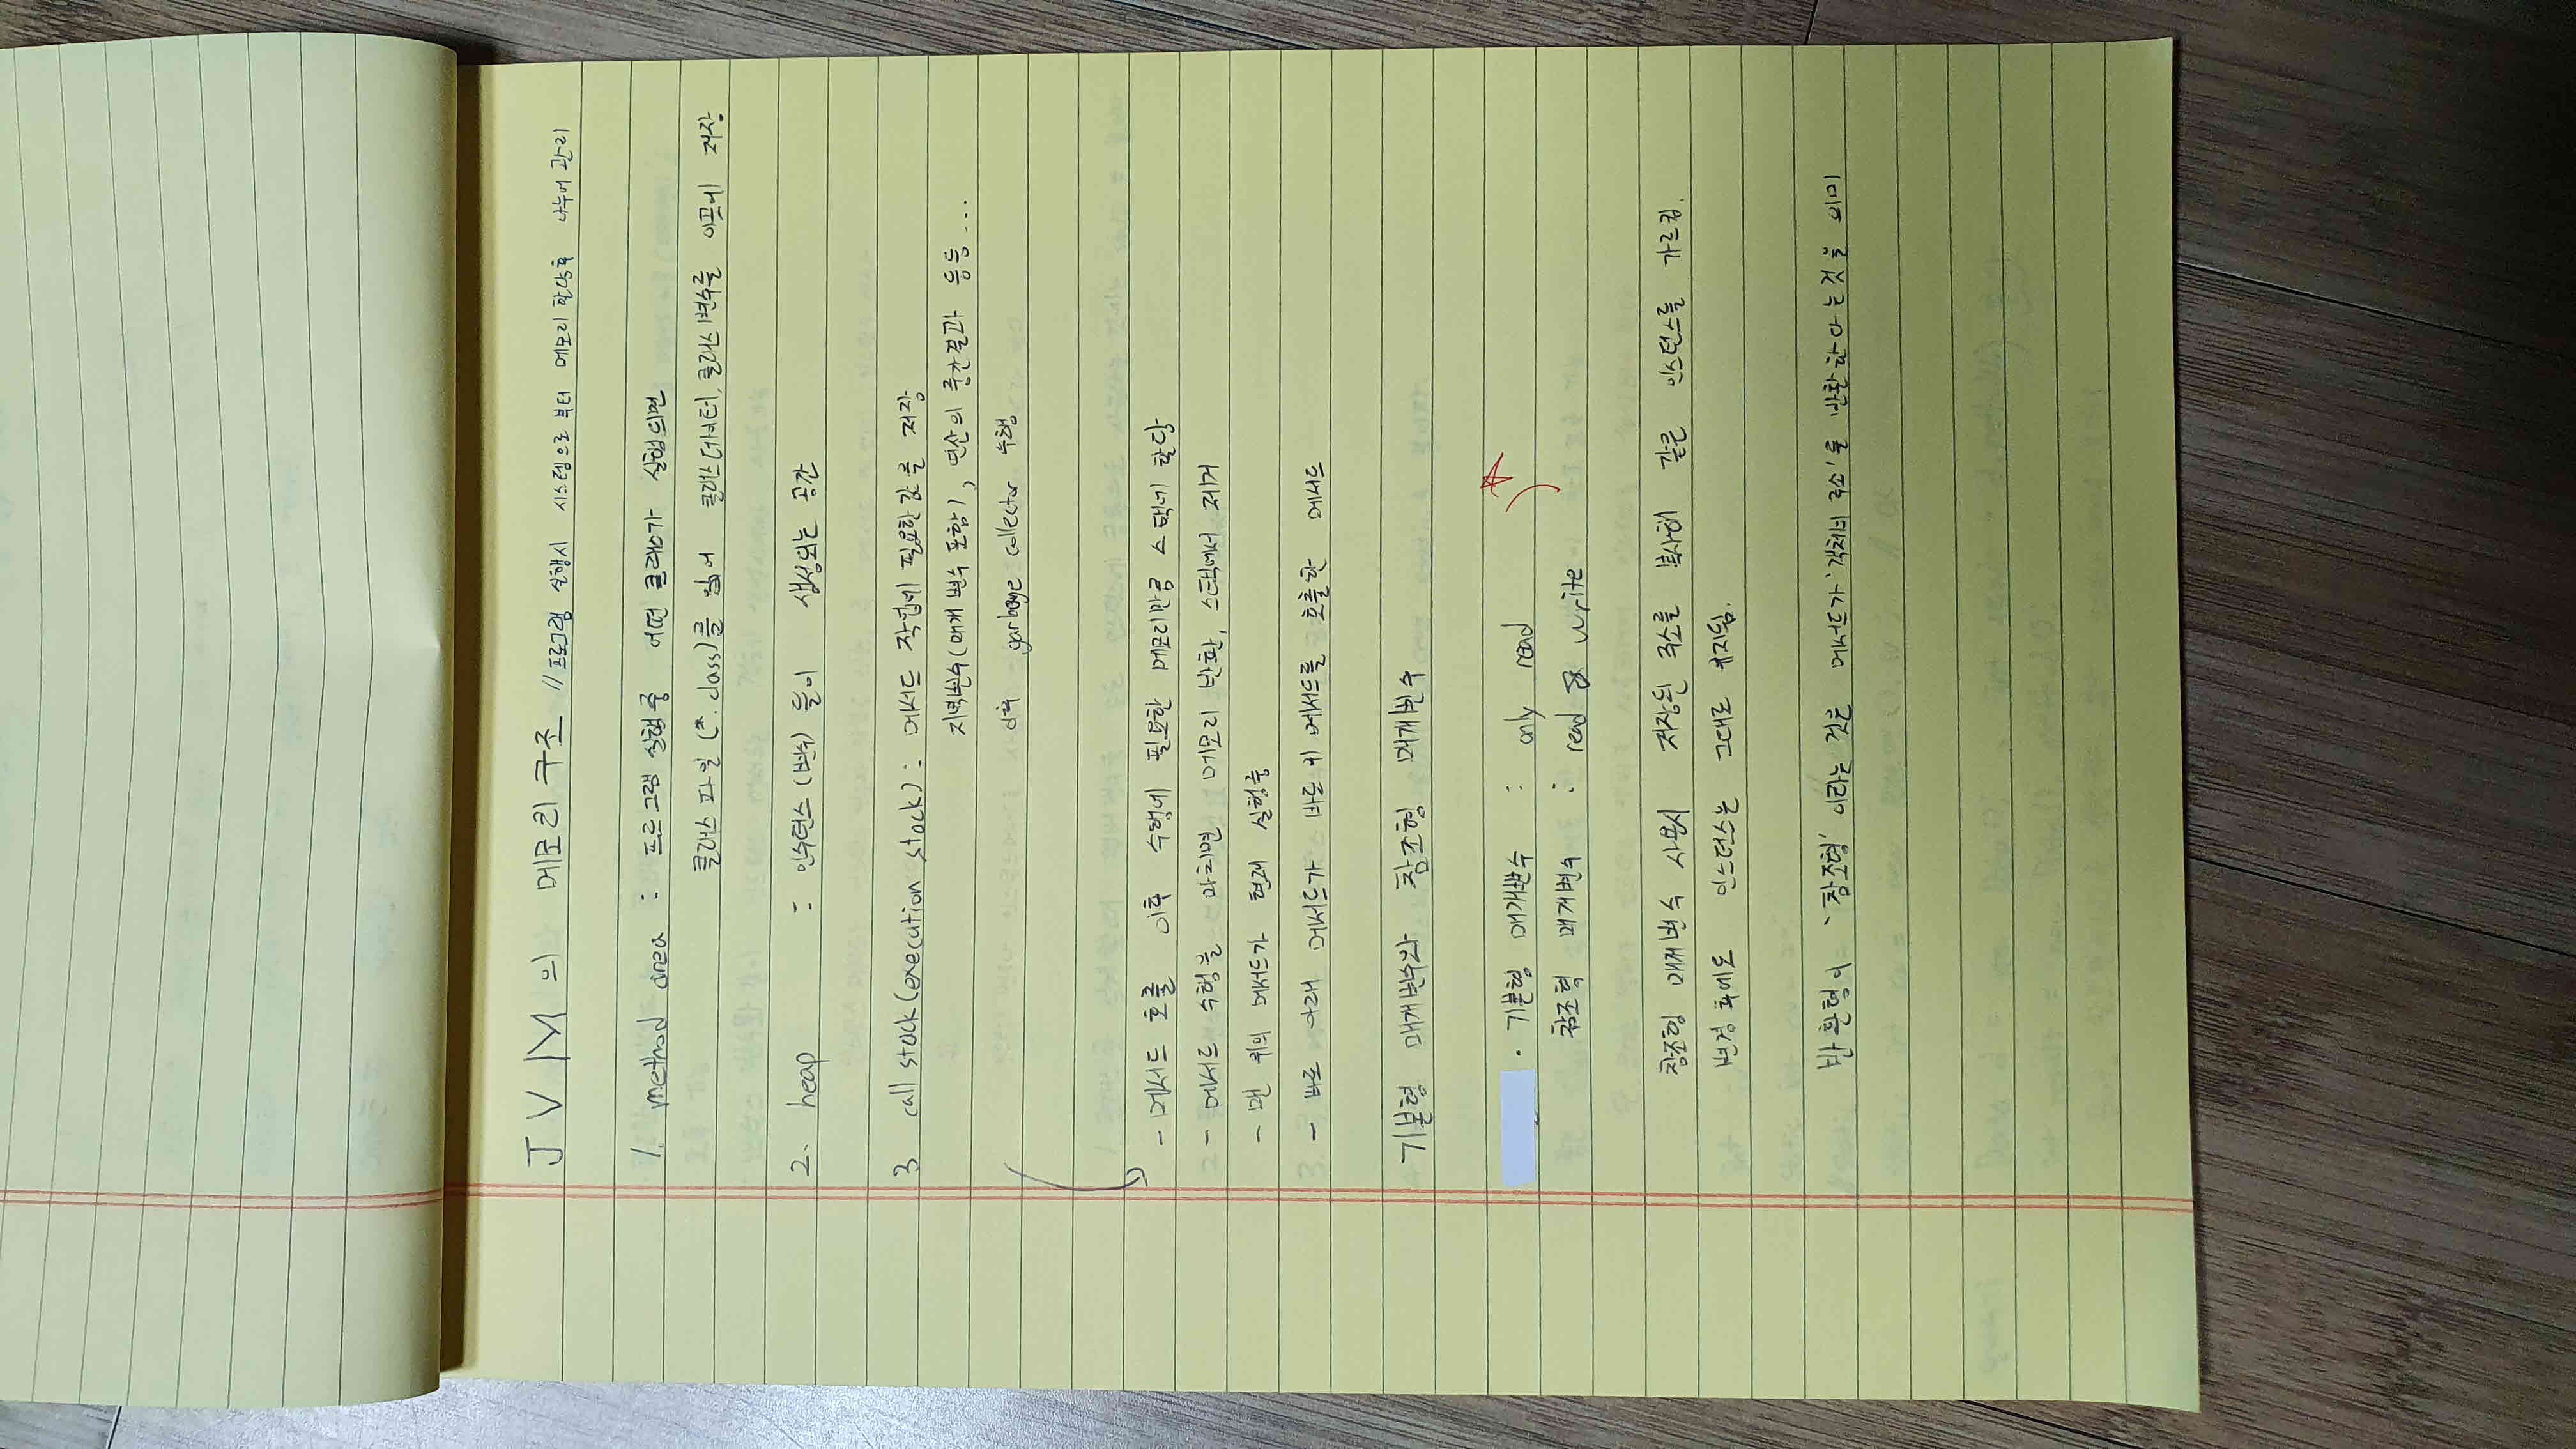 JVM의 메모리 구조 // 프로그램 실행시 시스템으로 부터 메모리 할당후 나누어 관리
1. method area : 프로그램 실행중 어떤 클래스가 실행되면
클래스 파일 (*.class)를 읽어 클래스데이터, 클래스변수를 이곳에 저장
2. heap : 인스턴스 (변수) 들이 생성되는 공간
3 call stack (execution stack) : 메서드 작업에 필요한 값을 저장
지역변수 (매개 변수 포함), 연산의 중간결과 등등...
이후 garbage collector 수행
- 메서드 호출 이후 수행에 필요한 메모리만큼 스택에 할당
- 메서드 수행을 마치면 메모리 반환, 스택에서 제거
- 맨 위의 메서드가 현재 실행중
- 바로 아래 메서드가 바로 위 메서드를 호출한 메서드
기본형 매개변수와 참조형 매개변수
· 기본형 매개변수 : only read
참조형 매개변수 : read & write
참조형 매개변수 사용시 저장된 주소를 복사해 같은 인스턴스를 가르킴.
변경 후에도 인스턴스는 그대로 유지됨.
반환형이 '참조형' 이라는 것은 메서드가 '객체의 주소'를 반환한다는것을 의미